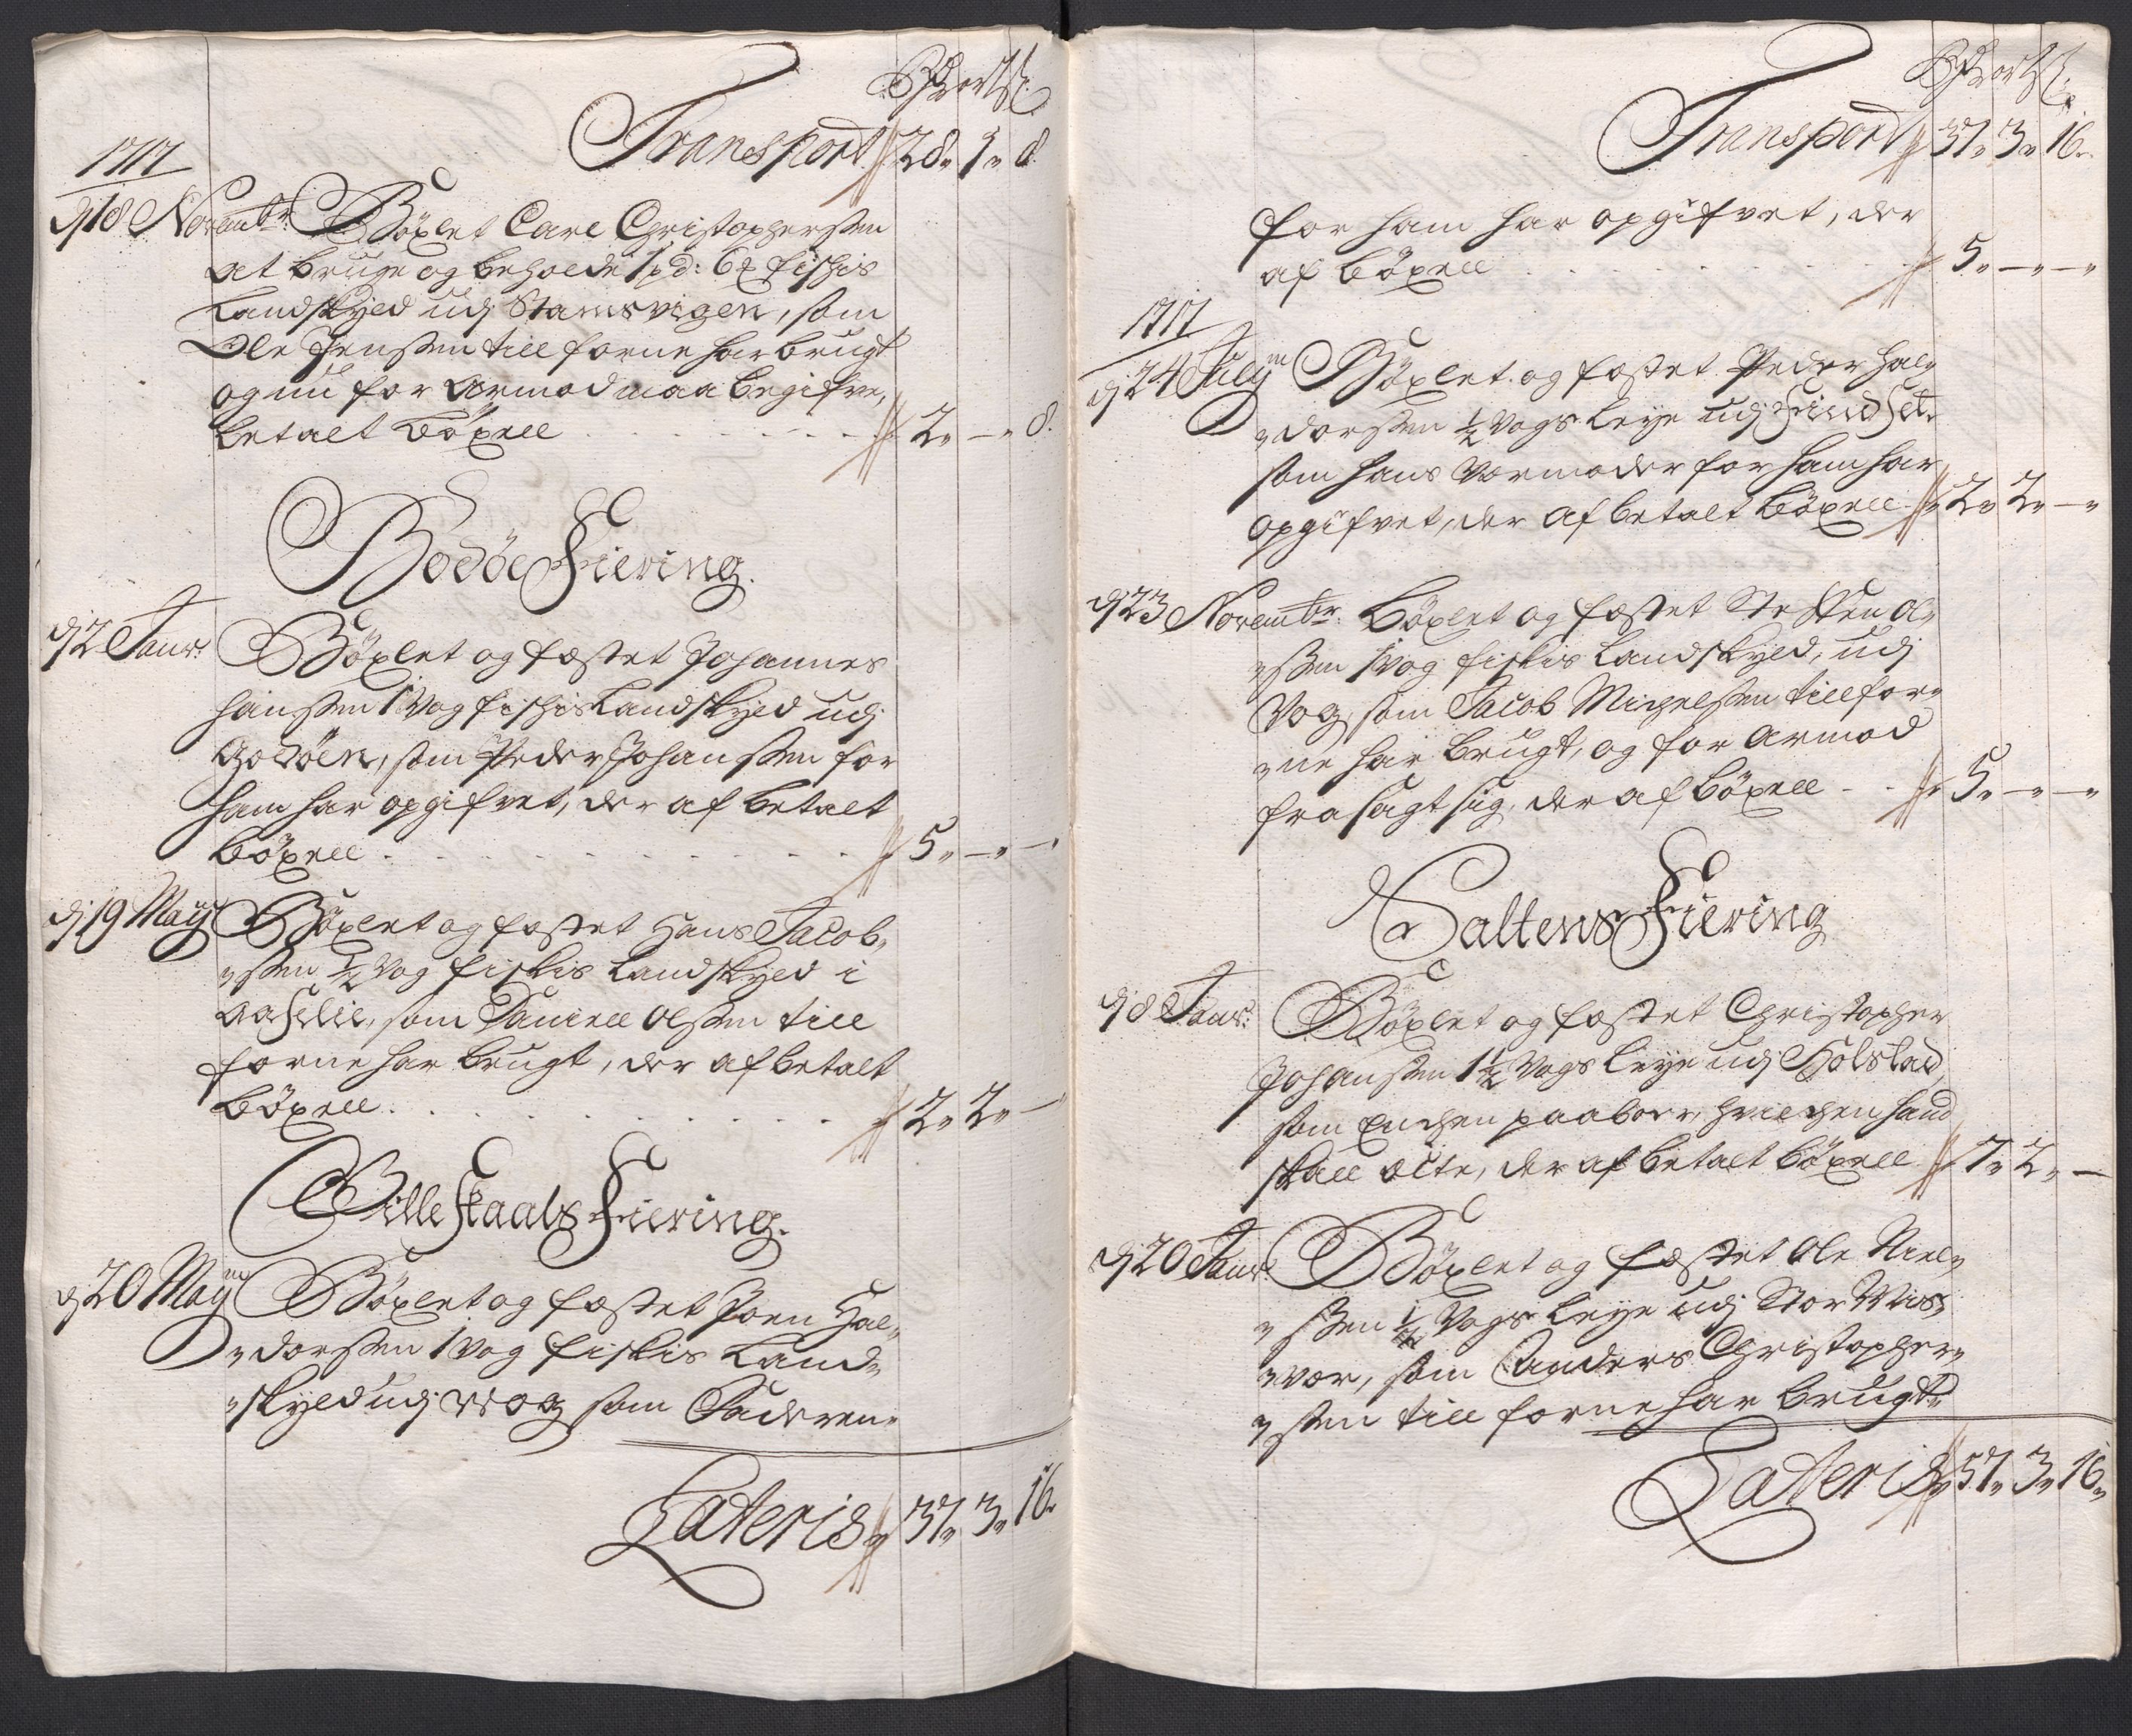 Rdr ort ß
Transport 28„ 1„ 8.
1717
dj 18 Novembr: Böxlet Carl Christophersen
at bruge og beholde 1 pd: 6 # fischis
Landskyld udj Stamsvigen, som
Ole Jenssen till forne har brugt
og nu for Armod maa begifve,
betalt böxell . . . . . . . 2„ —„ 8.
Bodöe Fiering.
dj 2 Janr: Böxlet og fæstet Johannes
Hanssen 1 Vog fischis Landskyld udj
Godöen, som Peder Johanssen for
ham har opgifvet, der af betalt
böxell . . . . . . . . . 5„ —„ —„
dj 19 Maij Böxlet og fæstet Hans Jacob„
„sen ½ Vog fischis Landskyld i
Aaselie, som Daniell Olssen till
forne har brugt, der af betalt
böxell . . . . . . . . . 2„ 2„ —
Gilleskaals Fiering.
dj 20 Maij Böxlet og fæstet Joen Hal„
„dorssen 1 Vog fischis Land„
„skyld udj Wog som Faderen„
Lateris„ 37„ 3„ 16„
Rdr ort ß
Transport 37„ 3„ 16„
for ham har opgifvet, der
af böxell . . . . . . . 5„ —„ —„
1717
dj 24 Julij Böxlet og fæstet Peder Hal„
„dorssen ½ Vogs Leye udj Findset
som hans Vermoder for ham har
opgifvet, der af betalt böxell 2„ 2„ —„
dj 23 Novembr: böxlet og fæstet Steffen Ol„
„ssen 1 Vog fiskis Landskyld, udj
Vog, som Jacob Michelssen till for„
„ne har brugt, og for Armod
frasagt sig, der af böxell . . 5„ —„ —„
Saltens Fiering
dj 8 Janr: Böxlet og fæstet Christopher
Johanssen 1½ Vogs Leye udj Holstad,
som Enchen paaboer, hvilchen hand
skall ecte, der af betalt böxell 7„ 2„ —
dj 20 Janr: Böxlet og fæstet Ole Niel„
„ssen ½ Vogs Leye udj Stor Wis„
„vær, som Anders Christopher„
„ssen till forne har brugt„
Lateris„ 57„ 3„ 16„